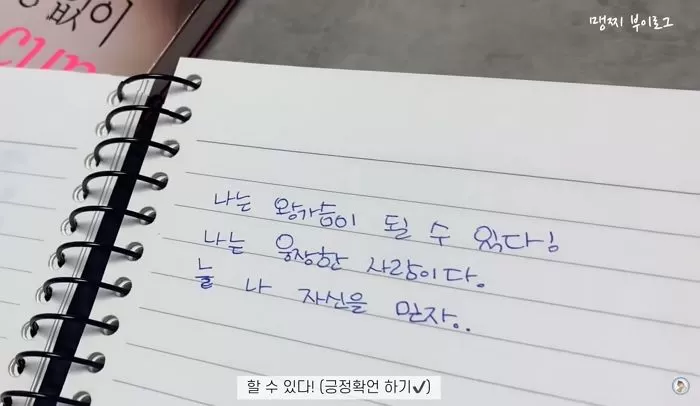 없이
cup
맹찌 부이로그
나는 왕가슴이 될 수 있다!
나는 웅장한 사람이다.
늘 나 자신을 믿자..
할 수 있다! (긍정확언 하기✔)